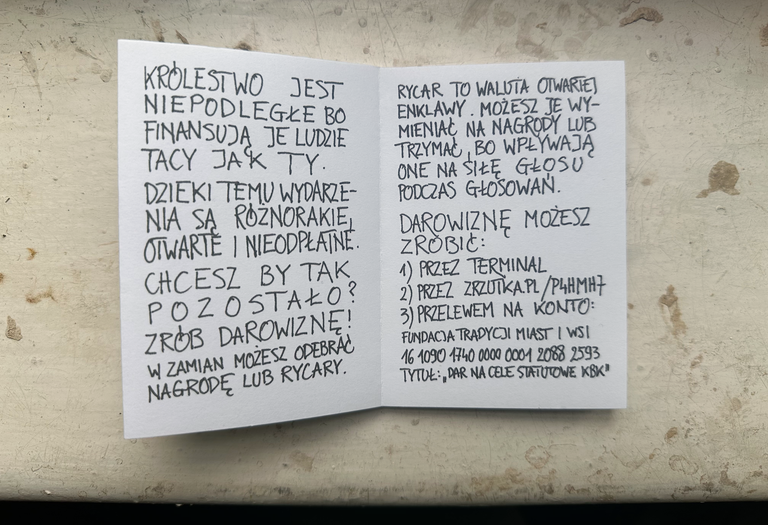 KRÓLESTWO JEST
NIEPODLEGŁE BO
FINANSUJĄ JE LUDZIE
TACY JAK TY.
DZIEKI TEMU WYDARZE-
NIA SĄ RÓŻNORAKIE,
OTWARTE I NIEODPŁATNE.
CHCESZ BY TAK
POZOSTAŁO?
ZRÓB DAROWIZNĘ!
W ZAMIAN MOŻESZ ODEBRAĆ
NAGRODĘ LUB RYCARY.
RYCAR TO WALUTA OTWARTEJ
ENKLAWY. MOŻESZ JE WY-
MIENIAĆ NA NAGRODY LUB
TRZYMAĆ, BO WPŁYWAJĄ
ONE NA SIŁĘ GŁOSU
PODCZAS GŁOSOWAŃ.
DAROWIZNĘ MOŻESZ
ZROBIĆ:
1) PRZEZ TERMINAL
2) PRZEZ ZRZUTKA.PL/P4HMH7
3) PRZELEWEM NA KONTO:
FUNDACJA TRADYCJI MIAST I WSI
16 1090 1740 0000 0001 2088 2593
TYTUŁ: „DAR NA CELE STATUTOWE KBK"